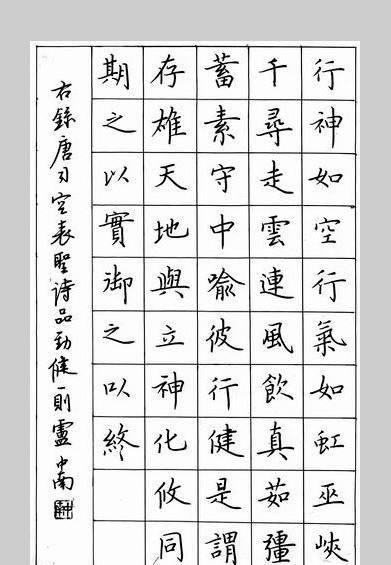 行神如空行氣如虹巫峽
千尋走雲連風飲真茹彊
蓄素守中喻彼行健是謂
存雄天地與立神化攸同
期之以實御之以終
右錄唐司空表聖詩品勁健一則盧中南